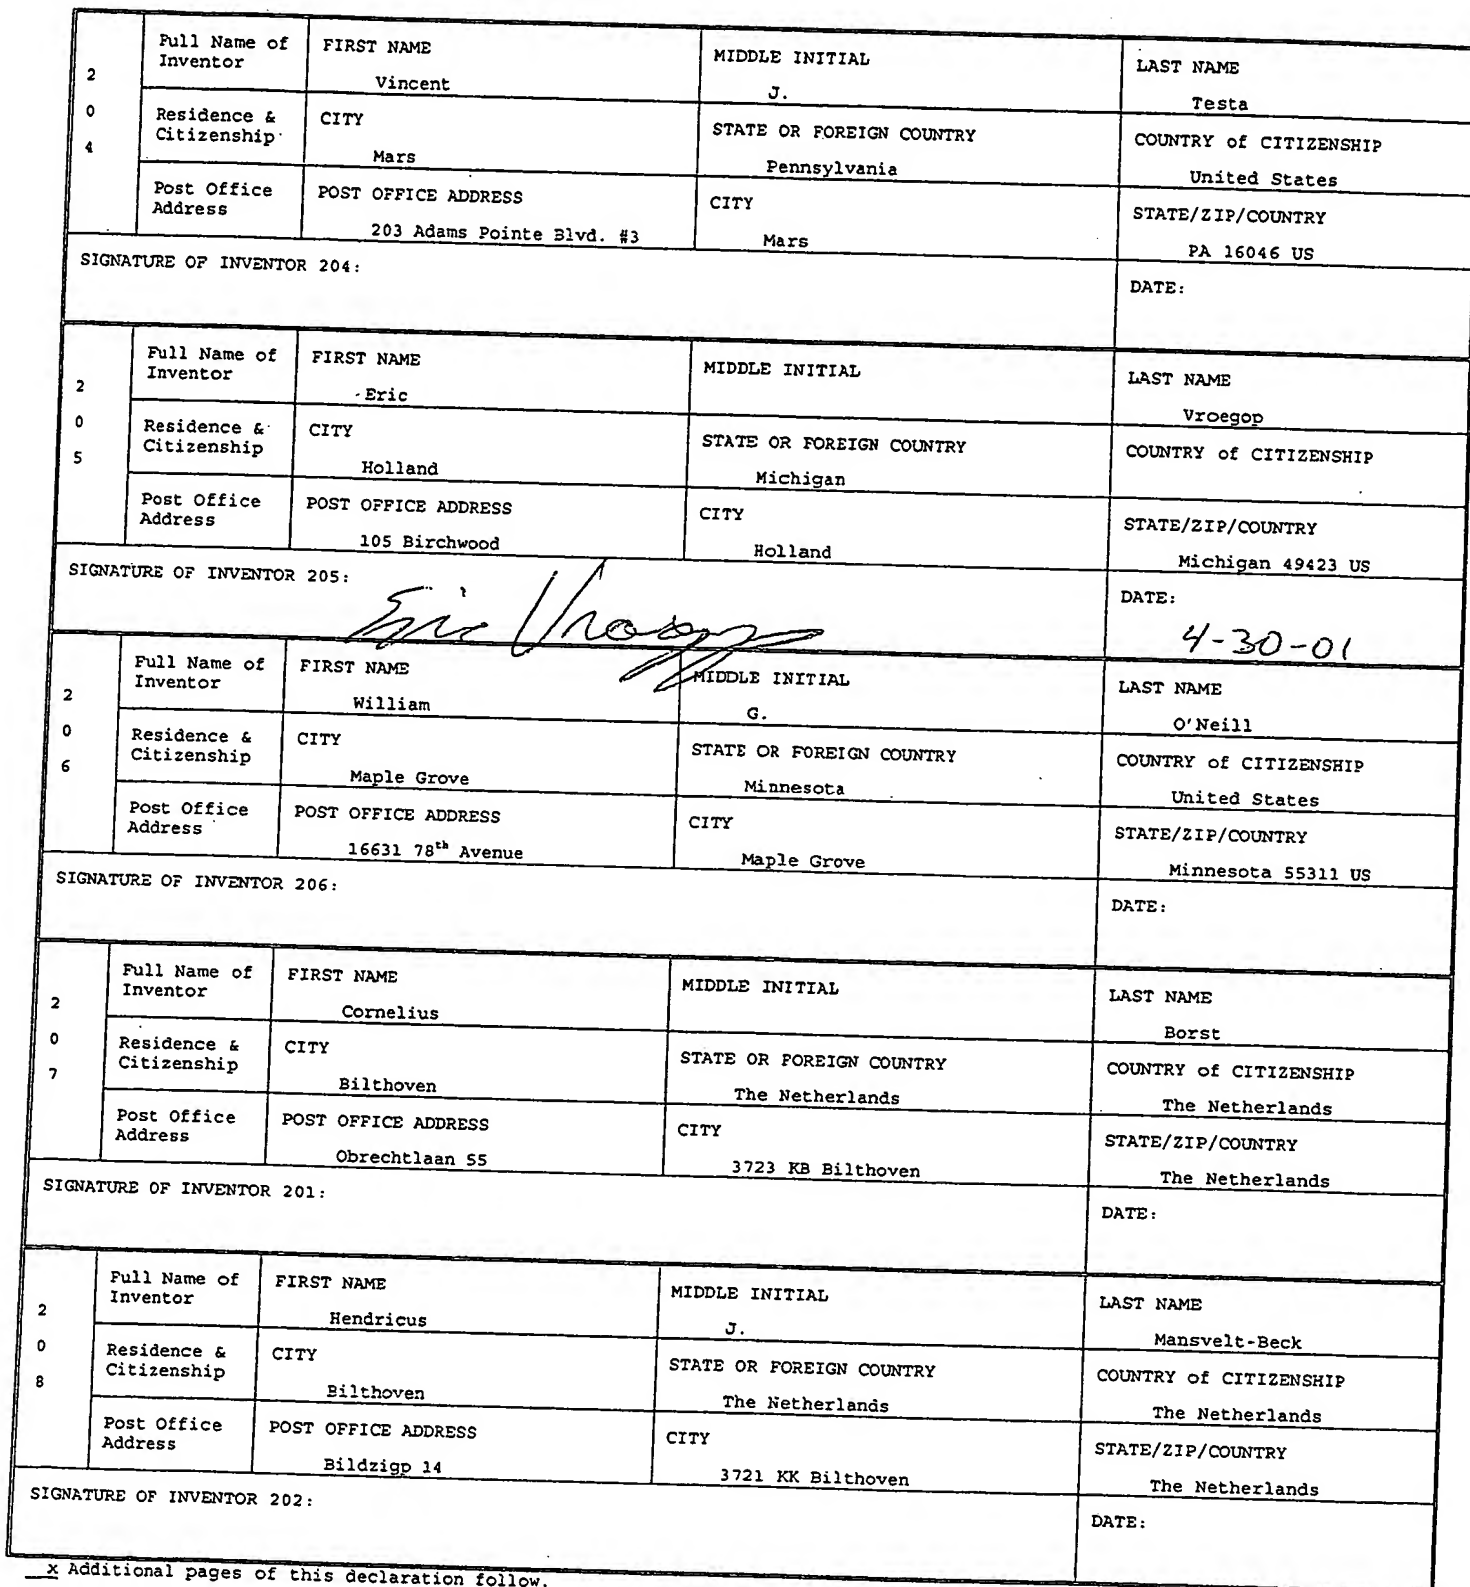 2 0 4
Full Name of Inventor
FIRST NAME
Vincent
MIDDLE INITIAL
J.
LAST NAME
Testa
Residence & Citizenship
CITY
Mars
STATE OR FOREIGN COUNTRY
Pennsylvania
COUNTRY of CITIZENSHIP
United States
Post Office Address
POST OFFICE ADDRESS
203 Adams Pointe Blvd. #3
CITY
Mars
STATE/ZIP/COUNTRY
PA 16046 US
SIGNATURE OF INVENTOR 204:
DATE:
2 0 5
Full Name of Inventor
FIRST NAME
Eric
MIDDLE INITIAL
LAST NAME
Vroegop
Residence & Citizenship
CITY
Holland
STATE OR FOREIGN COUNTRY
Michigan
COUNTRY of CITIZENSHIP
Post Office Address
POST OFFICE ADDRESS
105 Birchwood
CITY
Holland
STATE/ZIP/COUNTRY
Michigan 49423 US
SIGNATURE OF INVENTOR 205:
Eric Vroegop
DATE:
4-30-01
2 0 6
Full Name of Inventor
FIRST NAME
William
MIDDLE INITIAL
G.
LAST NAME
O'Neill
Residence & Citizenship
CITY
Maple Grove
STATE OR FOREIGN COUNTRY
Minnesota
COUNTRY of CITIZENSHIP
United States
Post Office Address
POST OFFICE ADDRESS
16631 78th Avenue
CITY
Maple Grove
STATE/ZIP/COUNTRY
Minnesota 55311 US
SIGNATURE OF INVENTOR 206:
DATE:
2 0 7
Full Name of Inventor
FIRST NAME
Cornelius
MIDDLE INITIAL
LAST NAME
Borst
Residence & Citizenship
CITY
Bilthoven
STATE OR FOREIGN COUNTRY
The Netherlands
COUNTRY of CITIZENSHIP
The Netherlands
Post Office Address
POST OFFICE ADDRESS
Obrechtlaan 55
CITY
3723 KB Bilthoven
STATE/ZIP/COUNTRY
The Netherlands
SIGNATURE OF INVENTOR 201:
DATE:
2 0 8
Full Name of Inventor
FIRST NAME
Hendricus
MIDDLE INITIAL
J.
LAST NAME
Mansvelt-Beck
Residence & Citizenship
CITY
Bilthoven
STATE OR FOREIGN COUNTRY
The Netherlands
COUNTRY of CITIZENSHIP
The Netherlands
Post Office Address
POST OFFICE ADDRESS
Bildzigp 14
CITY
3721 KK Bilthoven
STATE/ZIP/COUNTRY
The Netherlands
SIGNATURE OF INVENTOR 202:
DATE:
x Additional pages of this declaration follow.